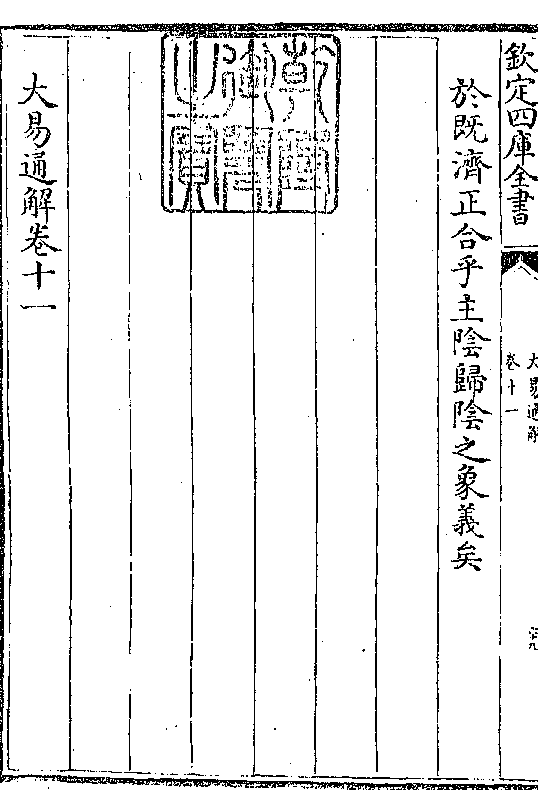 欽定四庫全書
大易通解
卷十一
於既濟正合乎主陰歸陰之象義矣
乾隆御覽之寶
大易通解卷十一